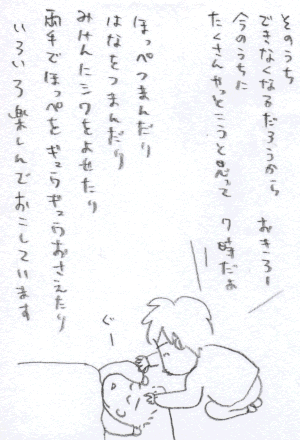 そのうち
できなくなるだろうから
今のうちに
たくさんやっとこうと思って
おきろー
7時だよ
ほっぺつまんだり
はなをつまんだり
みけんにシワをよせたり
両手でほっぺをぎゅうぎゅうおさえたり
いろいろ楽しんでおこしています
ぐー